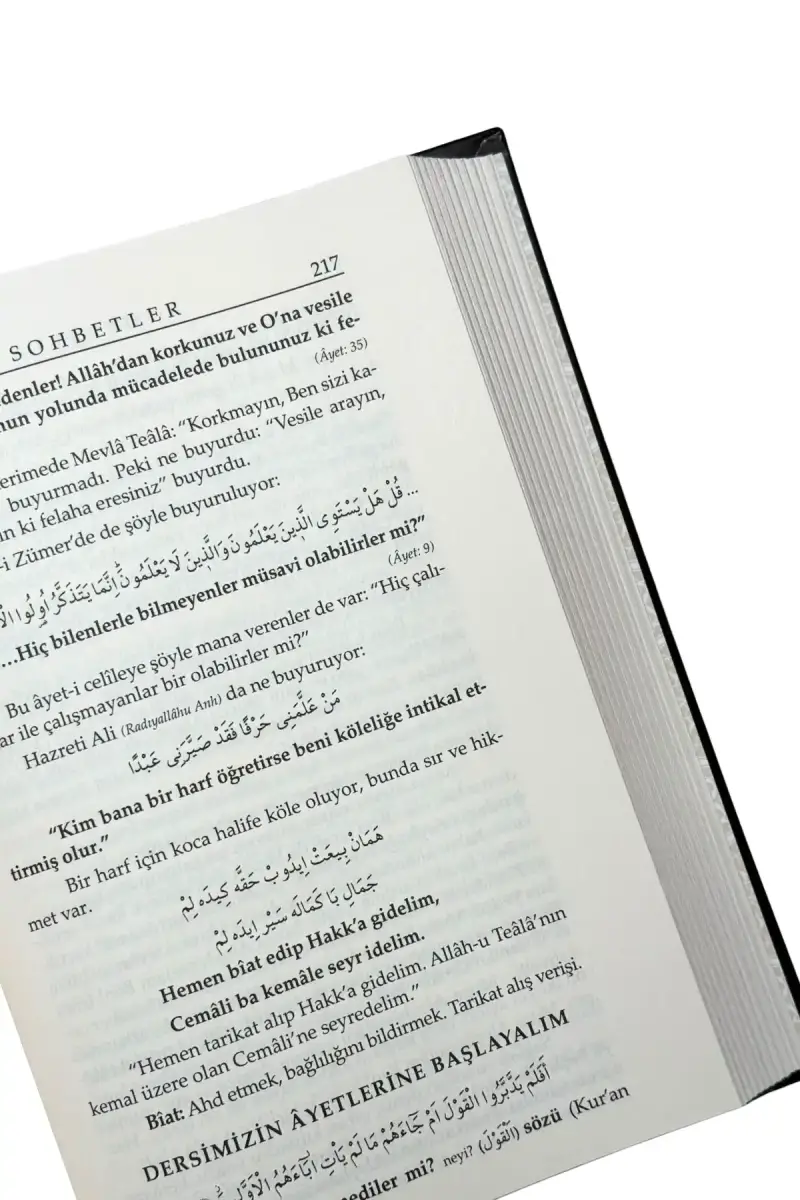 217
SOHBETLER
denler! Allâh'dan korkunuz ve O'na vesile
nun yolunda mücadelede bulununuz ki fe-
(Âyet: 35)
erimede Mevlâ Teâlâ: "Korkmayın, Ben sizi ka-
buyurmadı. Peki ne buyurdu: "Vesile arayın,
ın ki felaha eresiniz" buyurdu.
-i Zümer'de de şöyle buyuruluyor:
... قُلْ هَلْ يَسْتَوِى الَّذِينَ يَعْلَمُونَ وَالَّذِينَ لَا يَعْلَمُونَ اِنَّمَا يَتَذَكَّرُ اُولُوا
...Hiç bilenlerle bilmeyenler müsavi olabilirler mi?"
(Âyet: 9)
Bu âyet-i celîleye şöyle mana verenler de var: "Hiç çalı-
ar ile çalışmayanlar bir olabilirler mi?"
Hazreti Ali (Radıyallâhu Anh) da ne buyuruyor:
مَنْ عَلَّمَنِى حَرْفًا فَقَدْ صَيَّرَنِى عَبْدًا
"Kim bana bir harf öğretirse beni köleliğe intikal et-
tirmiş olur."
Bir harf için koca halife köle oluyor, bunda sır ve hik-
met var.
هَمَانْ بِيعَتْ اِيدُوبْ حَقَّه كِيدَه لِمْ
جَمَالِ بَا كَمَالَه سَيْر اِيدَه لِمْ
Hemen bîat edip Hakk'a gidelim,
Cemâli ba kemâle seyr idelim.
"Hemen tarikat alıp Hakk'a gidelim. Allâh-u Teâlâ'nın
kemal üzere olan Cemâli'ne seyredelim."
Bîat: Ahd etmek, bağlılığını bildirmek. Tarikat alış verişi.
DERSİMİZİN ÂYETLERİNE BAŞLAYALIM
اَفَلَمْ يَدَّبَّرُوا الْقَوْلَ اَمْ جَٓاءَهُمْ مَا لَمْ يَاْتِ اٰبَٓاءَهُمُ الْاَوَّلِ
ediler mi? neyi? (اَلْقَوْلَ) sözü (Kur'an